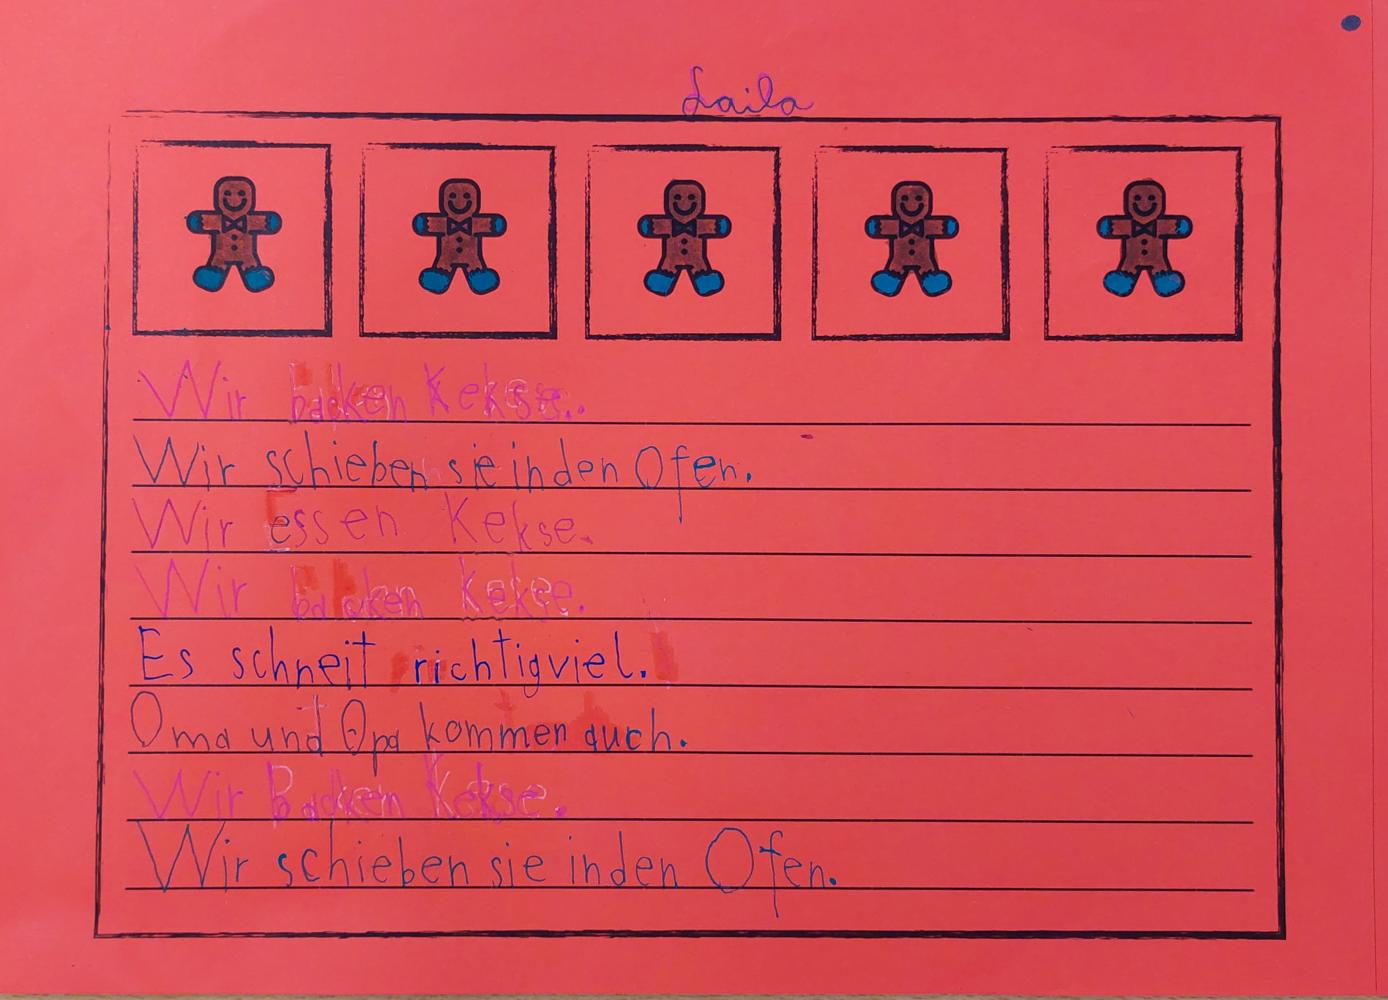 Laila
Wir backen Kekse.
Wir schieben sie in den Ofen.
Wir essen Kekse.
Wir backen Kekse.
Es schneit richtig viel.
Oma und Opa kommen auch.
Wir Backen Kekse.
Wir schieben sie in den Ofen.